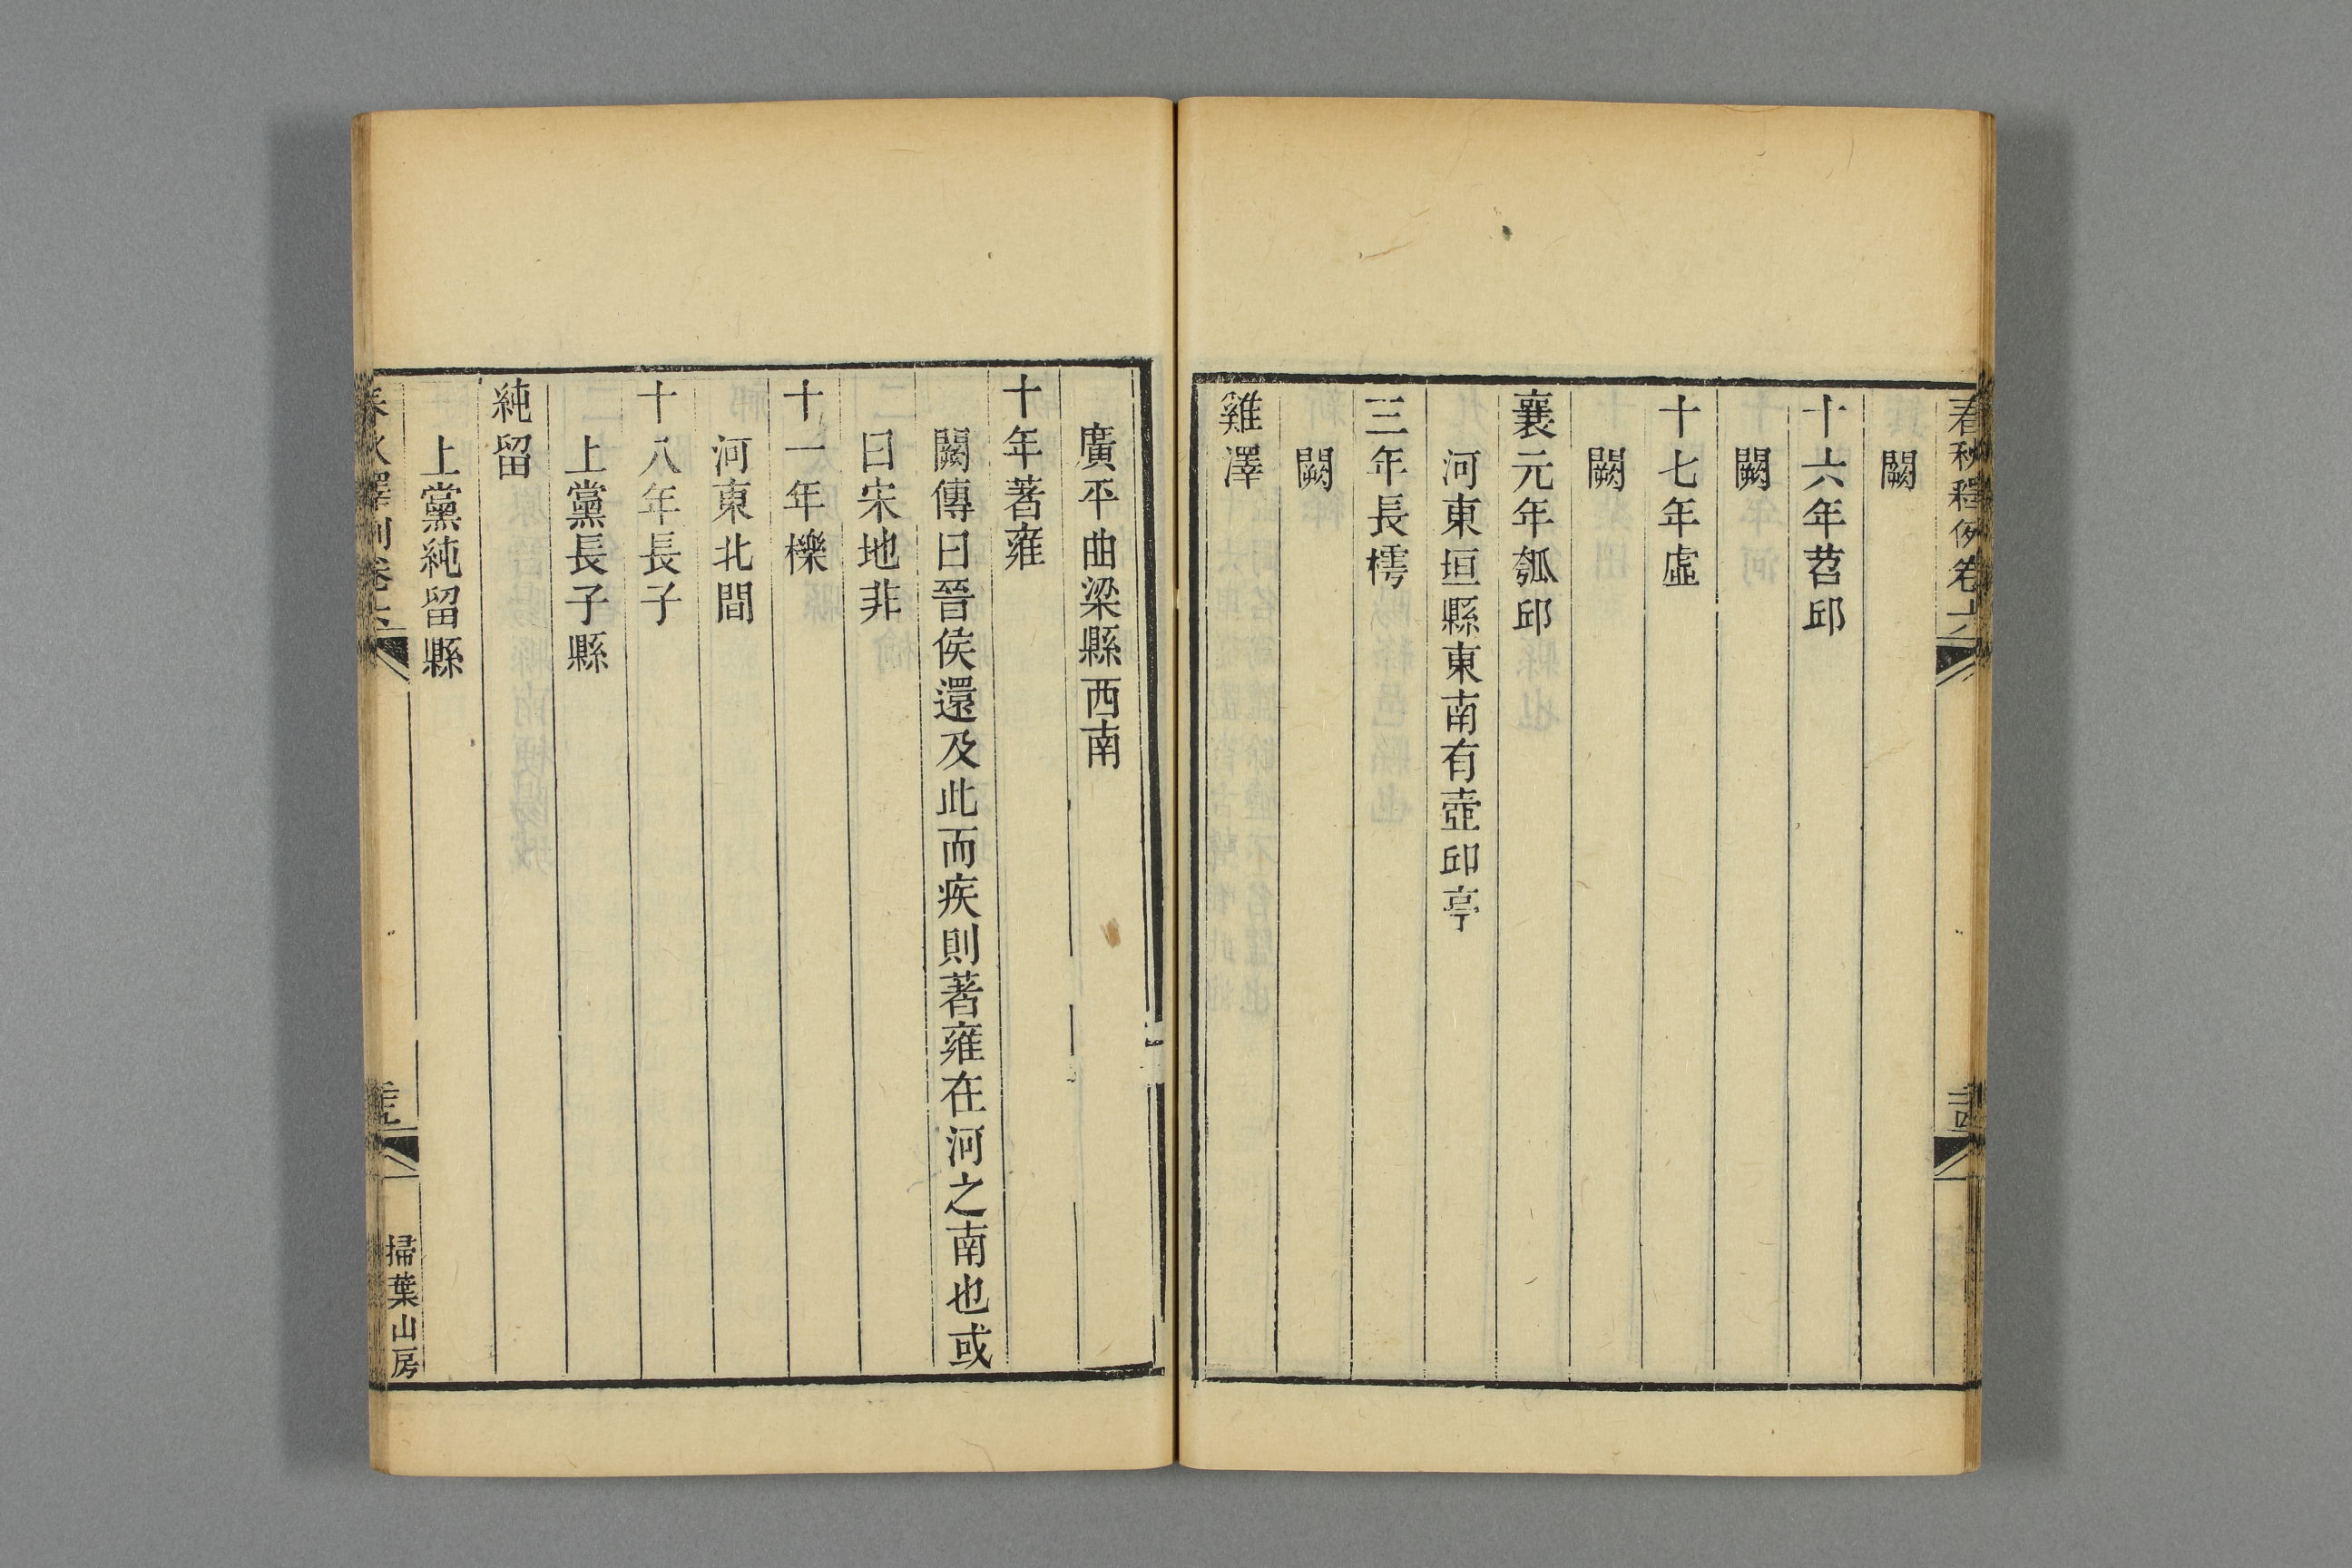 春秋釋例卷六
闕
十六年苕邱
闕
十七年虛
闕
襄元年瓠邱
河東垣縣東南有壺邱亭
三年長樗
闕
雞澤
廣平曲梁縣西南
十年著雍
闕傳曰晉侯還及此而疾則著雍在河之南也或
曰宋地非
十一年櫟
河東北間
十八年長子
上黨長子縣
純留
上黨純留縣
春秋釋例卷六
掃葉山房